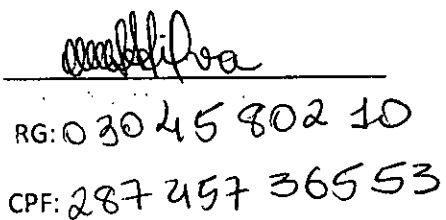 RG: 030 45 802 10
CPF: 287 457 365 53